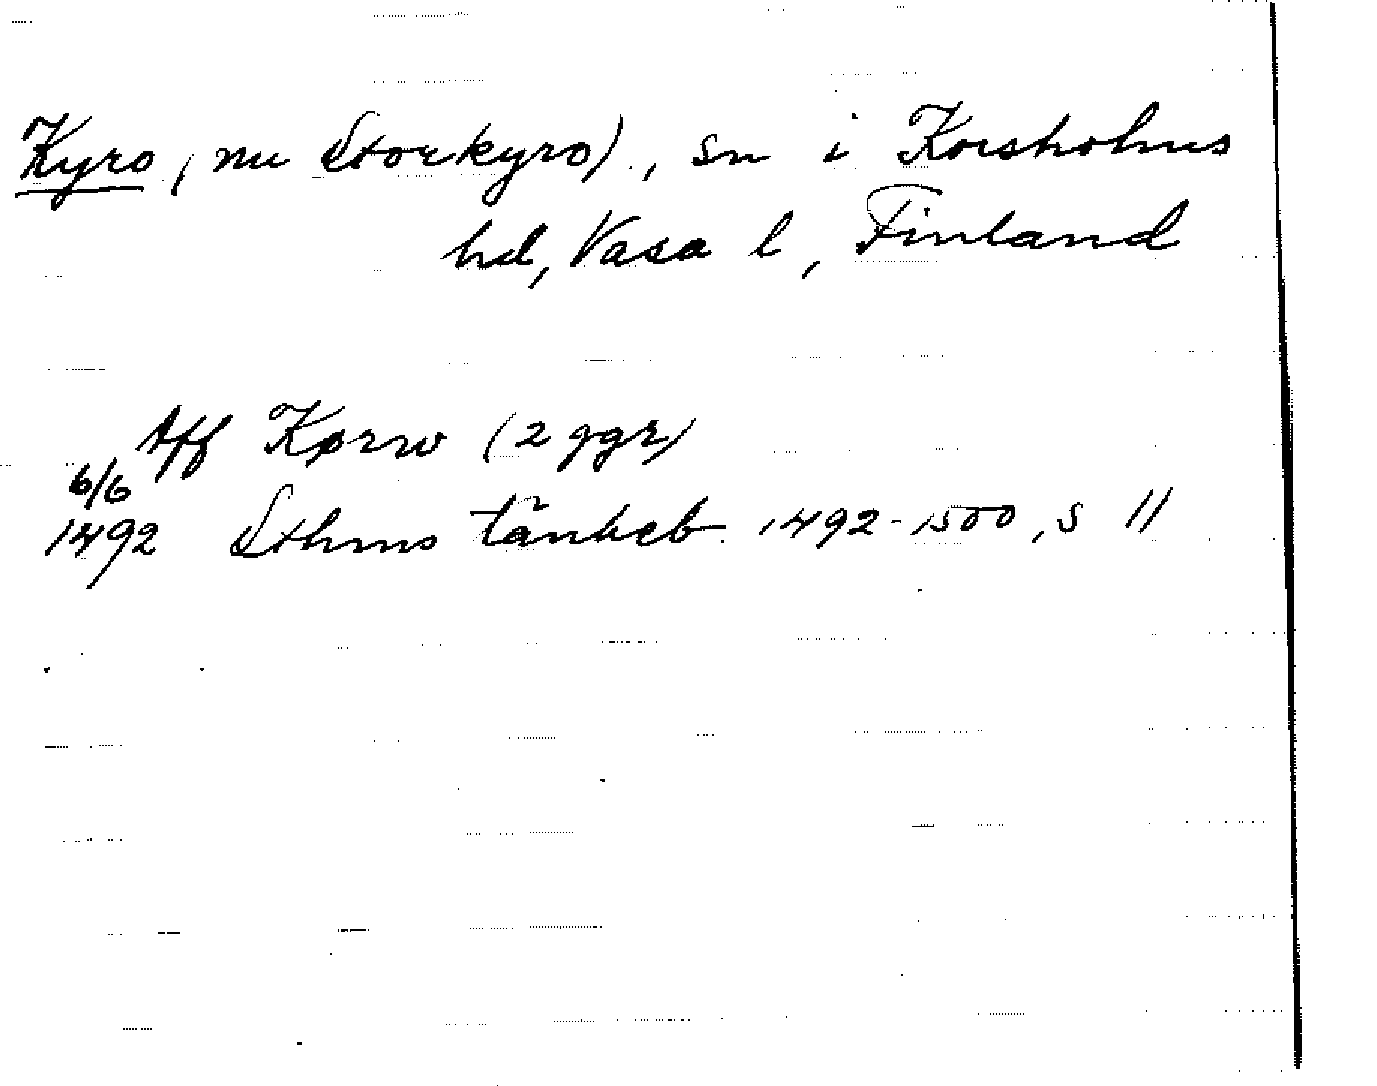 Kyro, (nu Storkyro), sn i Korsholms
hd, Vasa l, Finland
Aff Kørw (2 ggr)
6/6
1492 Sthms tänkeb 1492-1500, s 11